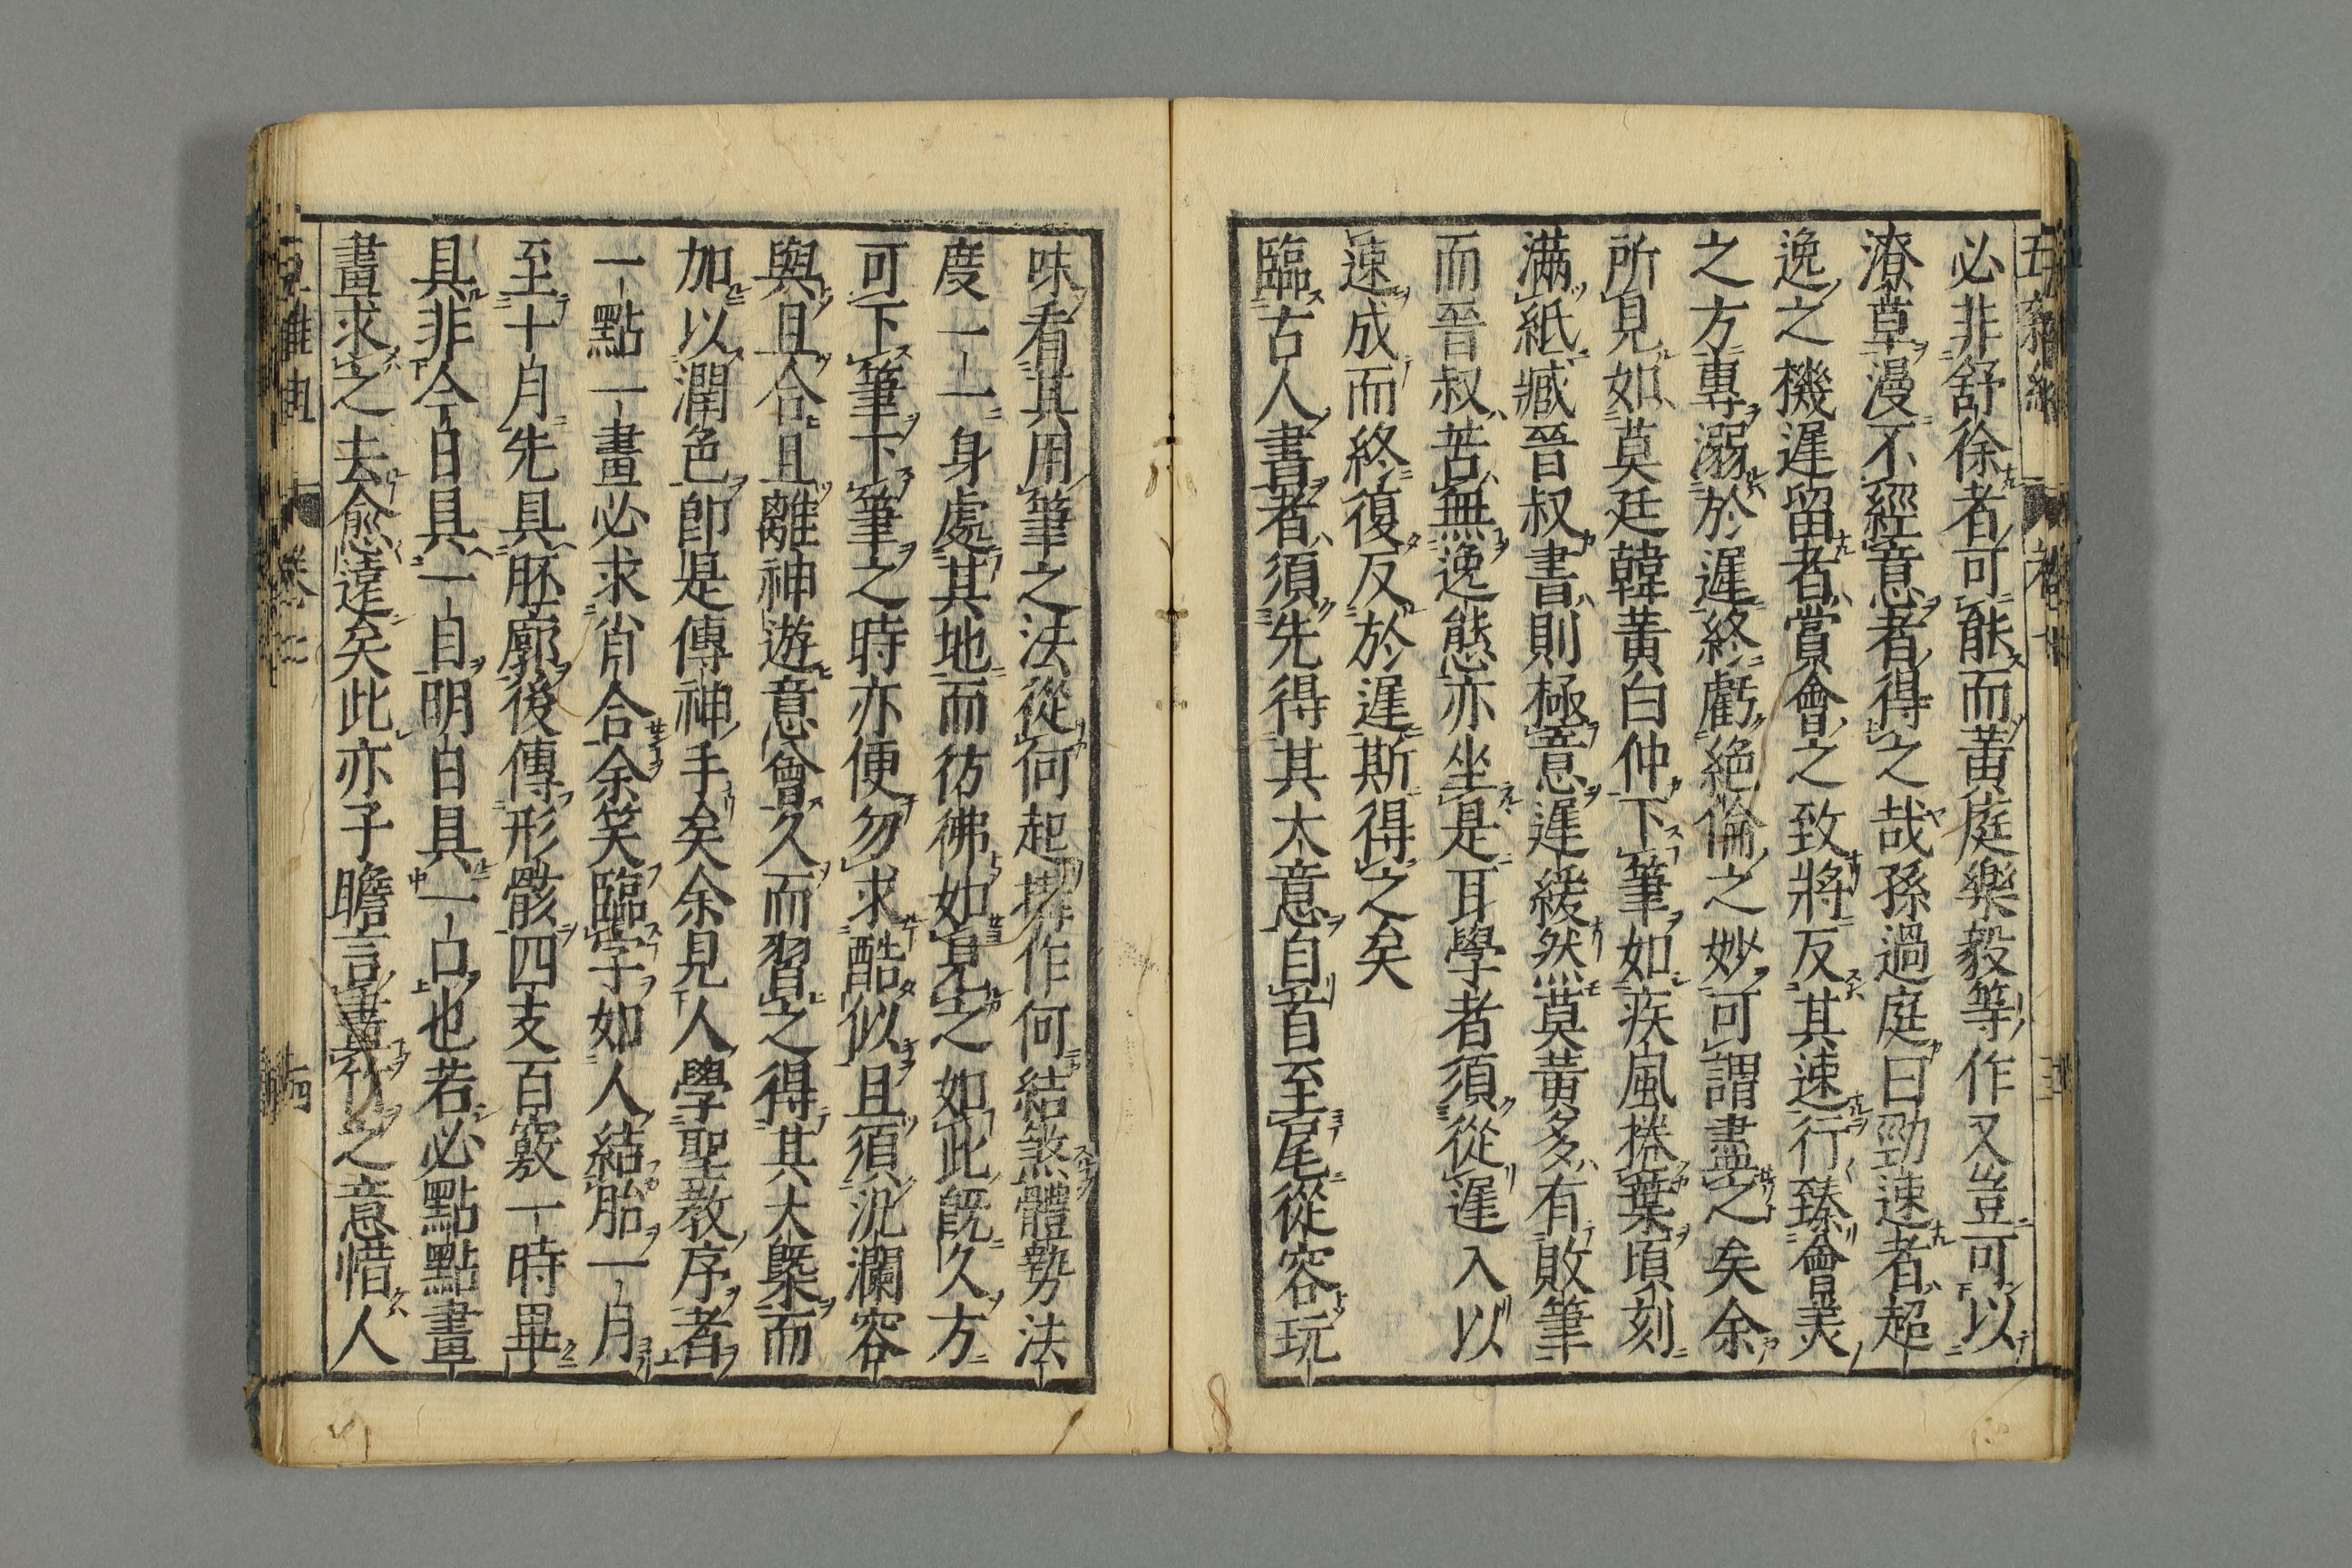 必非舒徐者可能而黄庭樂毅等作又豈可以
潦草漫不經意者得之哉孫過庭曰勁速者超
逸之機遲留者賞會之致將反其速行臻會美
之方專溺於遲終虧絶倫之妙可謂盡之矣余
所見如莫廷韓黄白仲下筆如疾風捲葉頃刻
滿紙臧晉叔書則極意遲緩然莫黄多有敗筆
而晉叔苦無逸態亦坐是耳學者須從遲入以
速成而終復反於遲斯得之矣
臨古人書者須先得其大意自首至尾從容玩
味看其用筆之法從何起搆作何結煞體勢法
度一一身處其地而彷彿如見之如此既久方
可下筆下筆之時亦便勿求酷似且須泛瀾容
與且合且離神遊意會久而習之得其大槩而
加以潤色即是傳神手矣余見人學聖教序者
一點一畫必求肖合余笑臨字如人結胎一月
至十月先具胚廓後傳形骸四支百竅一時畢
具非今日具一目明日具一口也若必點點畫
畫求之去愈遠矣此亦子瞻言畫竹之意惜人
五雜組
卷七
卷七